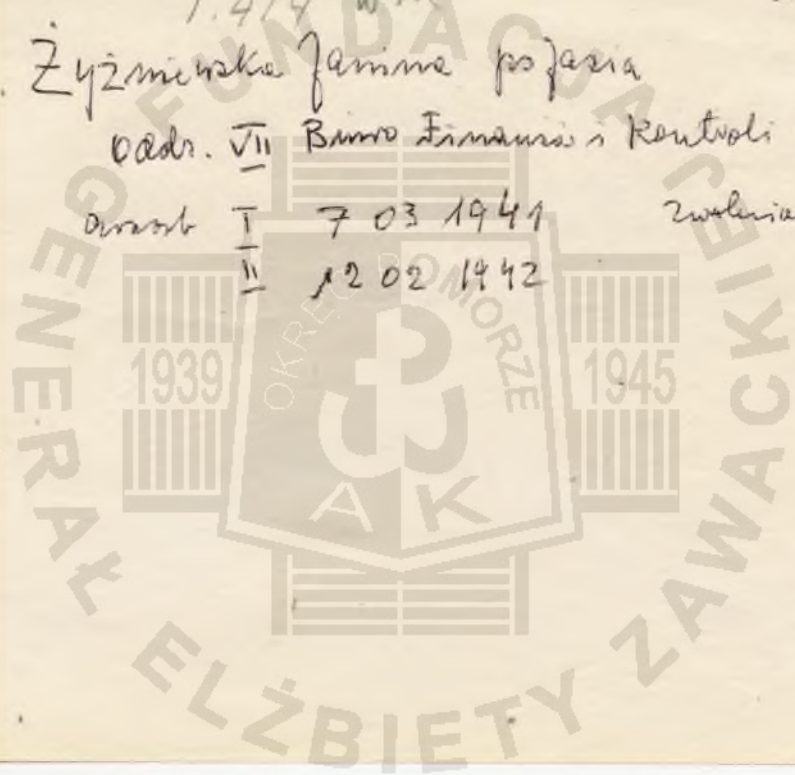 T. 414 WSK
Żyźniewska Janina ps Jasia
Oddz. VII Biuro Finansów i Kontroli
areszt I 7 03 1941 zwolnia
II 12 02 1942
FUNDACJA GENERAŁ ELŻBIETY ZAWACKIEJ
OKRĘG POMORZE
1939 1945
AK